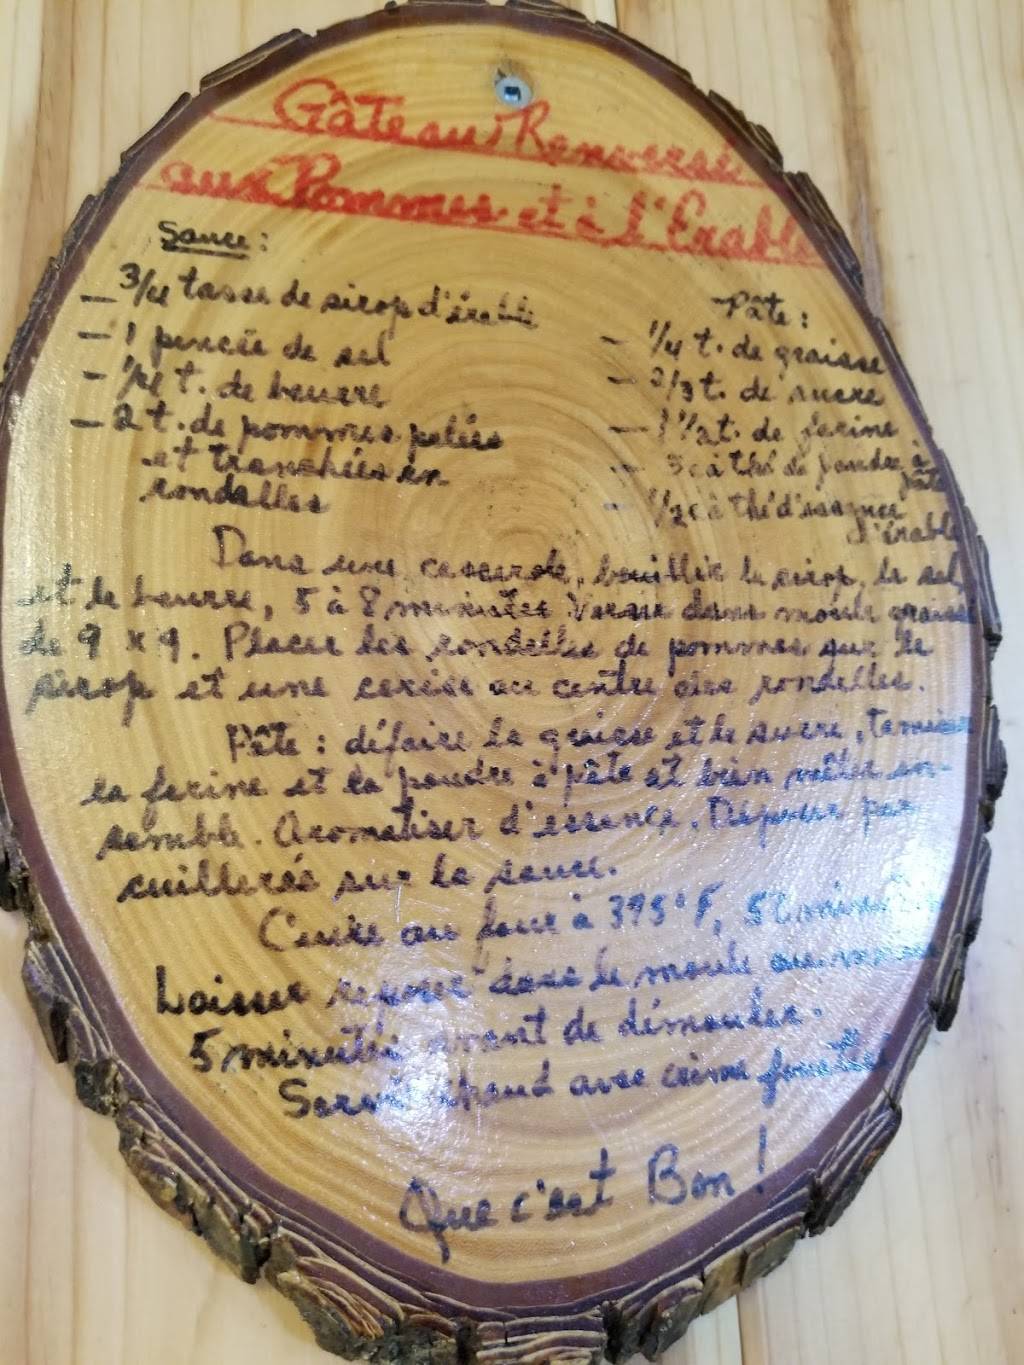 Gâteau Renversé
aux Pommes et à l'Érable
Sauce:
- 3/4 tasse de sirop d'érable
- 1 pincée de sel
- 1/4 t. de beurre
- 2 t. de pommes pelées
et tranchées en
rondelles
Pâte:
- 1/4 t. de graisse
- 2/3 t. de sucre
- 1 1/2 t. de farine
- 3 c à thé de poudre à
pâte
- 1/2 c à thé d'essence
d'érable
Dans une casserole, bouillir le sirop, le sel,
et le beurre, 5 à 8 minutes Verser dans moule graissé
de 9 x 9. Placer les rondelles de pommes sur le
sirop et une cerise au centre des rondelles.
Pâte: défaire la graisse et le sucre, tamiser
la farine et la poudre à pâte et bien mêler en-
semble. Aromatiser d'essence. Déposer par
cuillerés sur la sauce.
Cuire au four à 395°F,
Laisser reposer dans le moule au moins
5 minutes avant de démouler.
Servir chaud avec crème fouettée
Que c'est Bon!